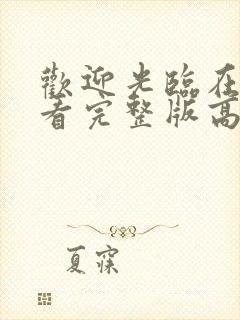 歡迎光臨在
看完整版高
夏寐